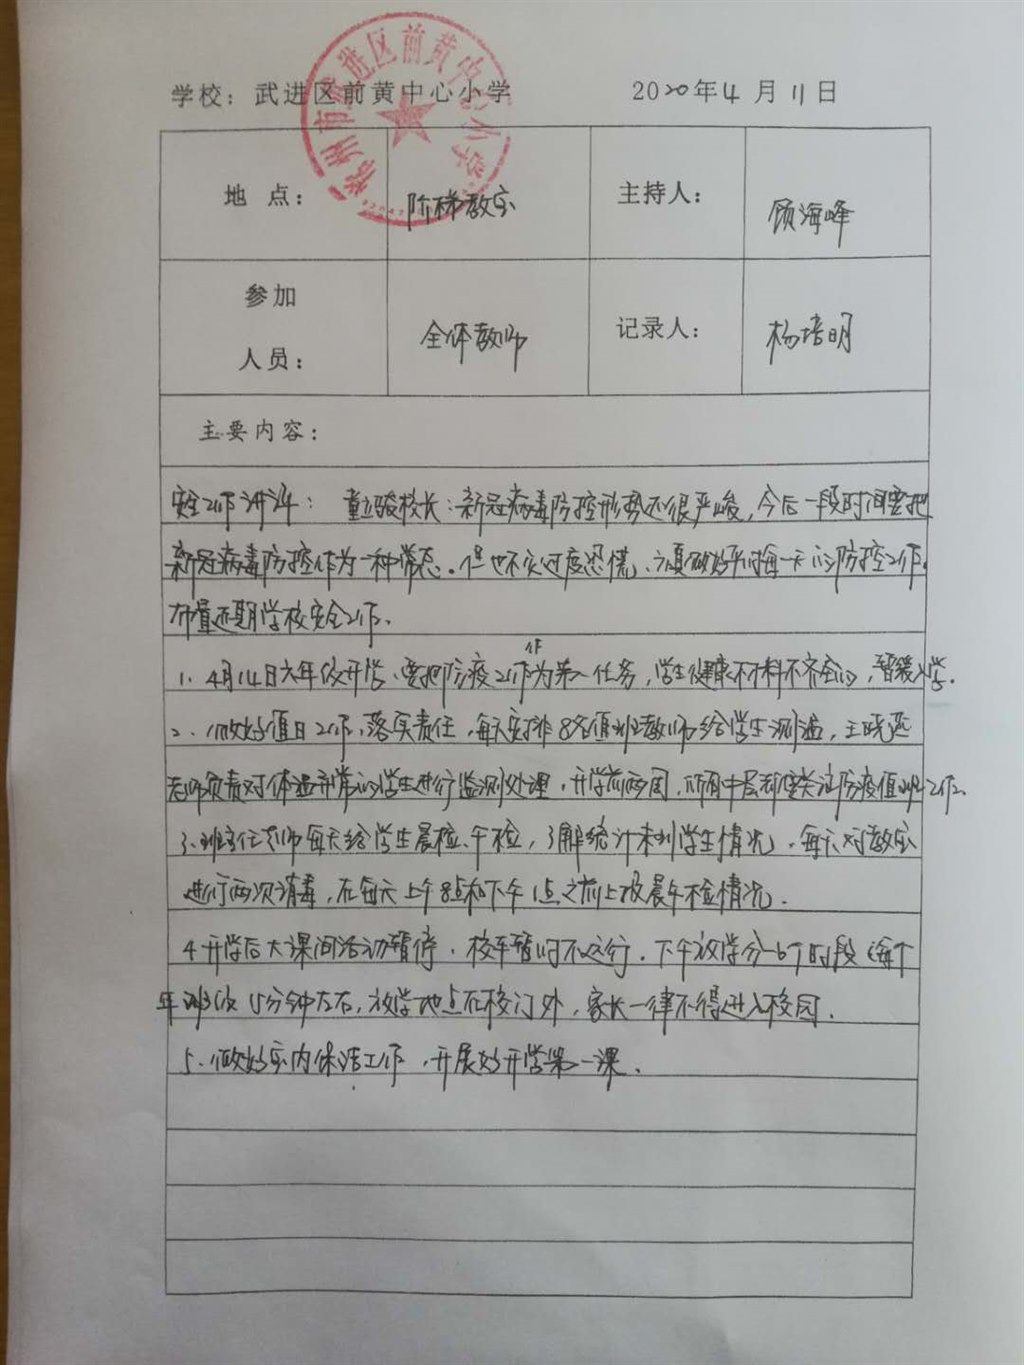 学校：武进区前黄中心小学 2020年4月11日
常州市武进区前黄中心小学
地 点： 阶梯教室 主持人： 顾海峰
参加
人员： 全体教师 记录人： 杨培明
主要内容：
安全工作讲评：童立骏校长：新冠病毒防控形势还很严峻，今后一段时间要把
新冠病毒防控作为一种常态。但也不必过度恐慌、须做好平时每一天的防控工作。
布置近期学校安全工作。
1、4月14日六年级开学、要把防疫工作作为第一任务，学生健康材料不齐全的，暂缓入学。
2、做好值日工作，落实责任，每天安排8名值班教师给学生测温，王晓燕
老师负责对体温异常的学生进行监测处理，开学前两周，所有中层都要关注防疫值班工作。
3、班主任老师每天给学生晨检、午检，了解统计未到学生情况，每天对教室
进行两次消毒，在每天上午8点和下午1点之前上报晨午检情况。
4 开学后大课间活动暂停，校车暂时不运行，下午放学分6个时段（每个
年班级15分钟左右，放学地点在校门外，家长一律不得进入校园。
5、做好室内保洁工作，开展好开学第一课。